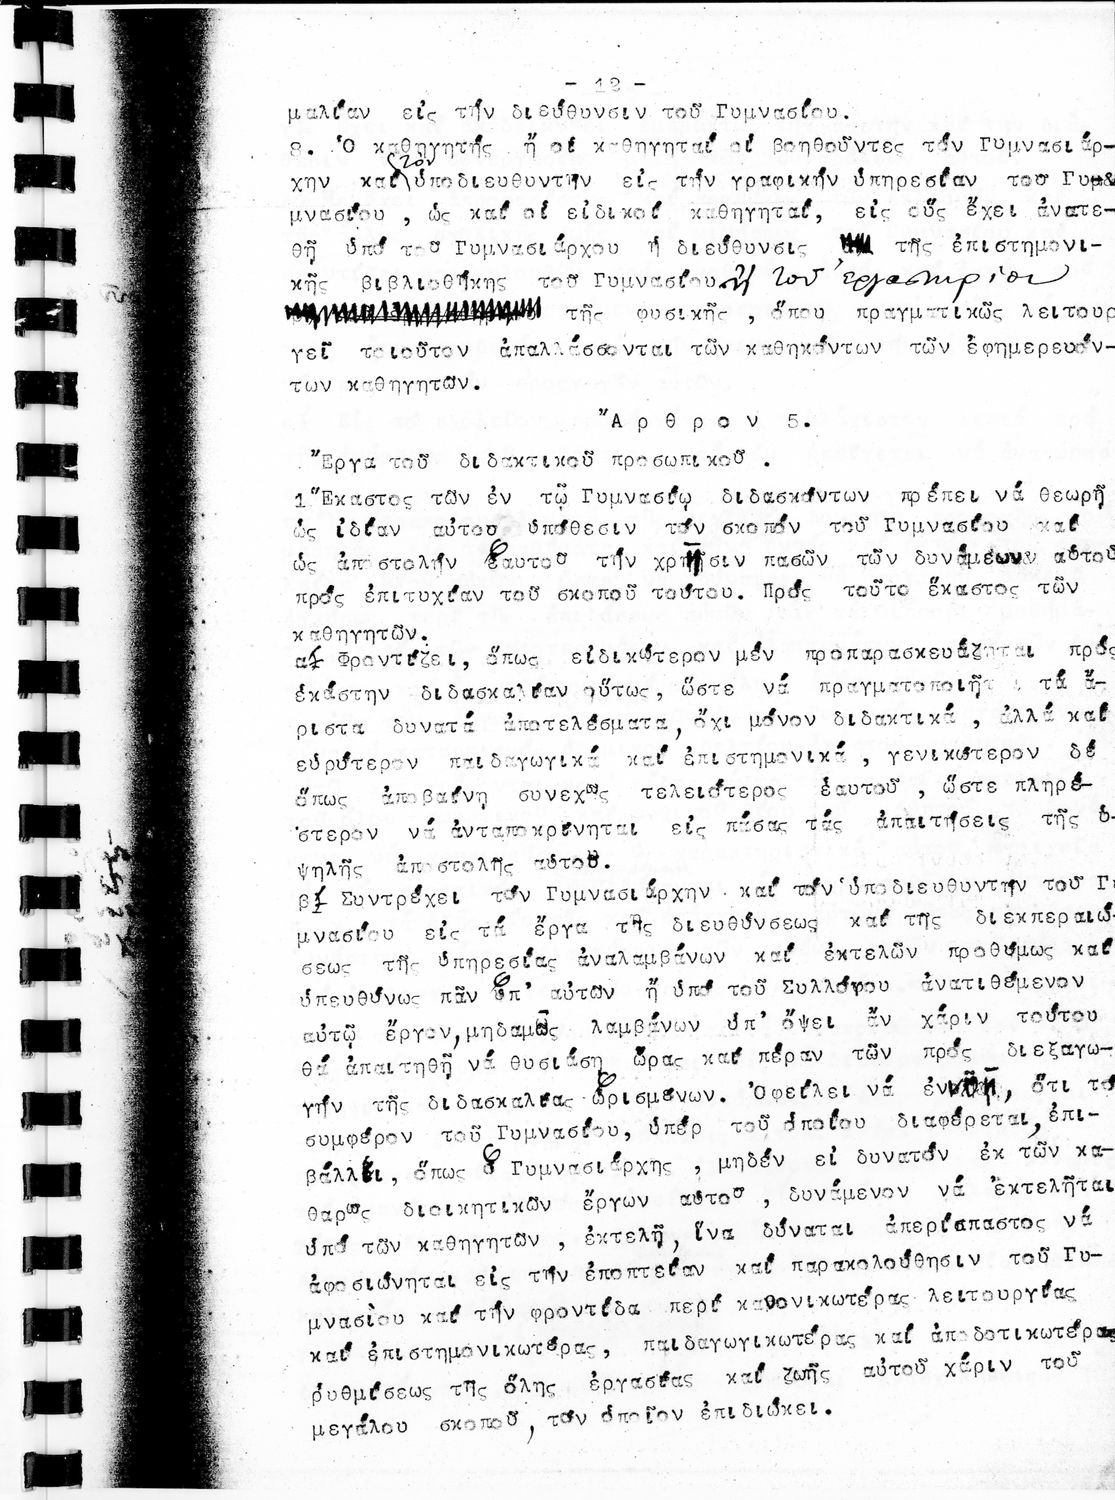 - 12 -
μαλίαν εἰς τήν διεύθυνσιν τοῦ Γυμνασίου.
8. Ὁ καθηγητής ἤ οἱ καθηγηταί οἱ βοηθοῦντες τόν Γυμνασιάρ-
χην καί τόν ὑποδιευθυντήν εἰς τήν γραφικήν ὑπηρεσίαν τοῦ Γυ
μνασίου , ὡς καί οἱ εἰδικοί καθηγηταί, εἰς οὕς ἔχει ἀνατε-
θῆ ὑπό τοῦ Γυμνασιάρχου ἡ διεύθυνσις τῆς ἐπιστημονι-
κῆς βιβλιοθήκης τοῦ Γυμνασίου ἤ τοῦ ἐργαστηρίου
τῆς φυσικῆς , ὅπου πραγματικῶς λειτουρ
γεῖ τοιοῦτον ἀπαλλάσσονται τῶν καθηκόντων τῶν ἐφημερευόν-
των καθηγητῶν.
Ἄρθρον 5.
Ἔργα τοῦ διδακτικοῦ προσωπικοῦ .
1 Ἕκαστος τῶν ἐν τῷ Γυμνασίῳ διδασκόντων πρέπει νά θεωρῇ
ὡς ἰδίαν αὐτοῦ ὑπόθεσιν τόν σκοπόν τοῦ Γυμνασίου καί
ὡς ἀποστολήν ἑαυτοῦ τήν χρῆσιν πασῶν τῶν δυνάμεων αὐτοῦ
πρός ἐπιτυχίαν τοῦ σκοποῦ τούτου. Πρός τοῦτο ἕκαστος τῶν
καθηγητῶν.
α) Φροντίζει, ὅπως εἰδικώτερον μέν προπαρασκευάζηται πρός
ἑκάστην διδασκαλίαν οὕτως, ὥστε νά πραγματοποιῆται τά ἄ-
ριστα δυνατά ἀποτελέσματα, ὄχι μόνον διδακτικά , ἀλλά καί
εὐρύτερον παιδαγωγικά καί ἐπιστημονικά , γενικώτερον δέ
ὅπως ἀποβαίνῃ συνεχῶς τελειότερος ἑαυτοῦ , ὥστε πληρέ-
στερον νά ἀνταποκρίνηται εἰς πάσας τάς ἀπαιτήσεις τῆς ὑ-
ψηλῆς ἀποστολῆς αὐτοῦ.
β) Συντρέχει τόν Γυμνασιάρχην καί τόν ὑποδιευθυντήν τοῦ Γυ
μνασίου εἰς τά ἔργα τῆς διευθύνσεως καί τῆς διεκπεραιώ-
σεως τῆς ὑπηρεσίας ἀναλαμβάνων καί ἐκτελῶν προθύμως καί
ὑπευθύνως πᾶν ὑπ' αὐτῶν ἤ ὑπό τοῦ Συλλόγου ἀνατιθέμενον
αὐτῷ ἔργον, μηδαμῶς λαμβάνων ὑπ' ὄψει ἄν χάριν τούτου
θά ἀπαιτηθῇ νά θυσιάσῃ ὥρας καί πέραν τῶν πρός διεξαγω-
γήν τῆς διδασκαλίας ὡρισμένων. Ὀφείλει νά ἐννοῇ, ὅτι τό
συμφέρον τοῦ Γυμνασίου, ὑπέρ τοῦ ὁποίου διαφέρεται, ἐπι-
βάλλει, ὅπως ὁ Γυμνασιάρχης , μηδέν εἰ δυνατόν ἐκ τῶν κα-
θαρῶς διοικητικῶν ἔργων αὐτοῦ , δυνάμενον νά ἐκτελῆται
ὑπό τῶν καθηγητῶν , ἐκτελῇ, ἵνα δύναται ἀπερίσπαστος νά
ἀφοσιώνηται εἰς τήν ἐποπτείαν καί παρακολούθησιν τοῦ Γυ-
μνασίου καί τήν φροντίδα περί κανονικωτέρας λειτουργίας
καί ἐπιστημονικωτέρας, παιδαγωγικωτέρας καί ἀποδοτικωτέρας
ρυθμίσεως τῆς ὅλης ἐργασίας καί ζωῆς αὐτοῦ χάριν τοῦ
μεγάλου σκοποῦ, τόν ὁποῖον ἐπιδιώκει.